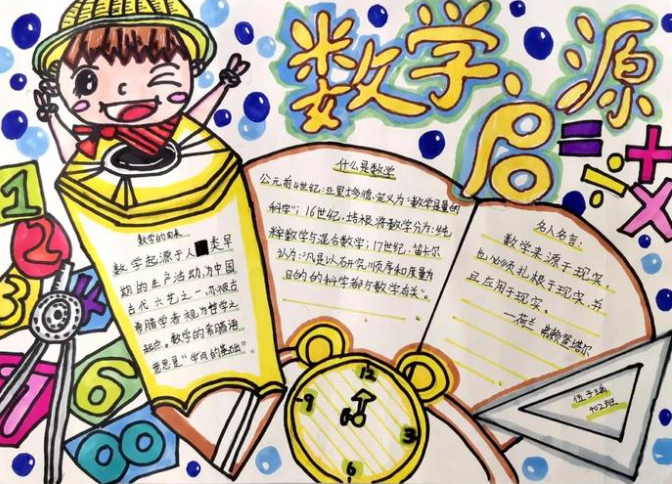 数学启源
什么是数学
公元前4世纪:亚里士多德,定义为:“数学是量的
科学”;16世纪:培根,将数学分为:“纯
粹数学与混合数学;17世纪:笛卡尔
认为:“凡是以研究顺序和度量为
目的的科学都与数学有关”。
数学的由来
数学起源于人 类早
期的生产活动,为中国
古代六艺之一,亦被古
希腊学者视为哲学之
起点。数学的希腊语
意思是“学问的基础”
名人名言:
数学来源于现实,
也必须扎根于现实,并
且应用于现实。
—荷兰 弗赖登塔尔
= + ÷ ×
1
2
3
4
6
7
00
12
9
3
6
402班